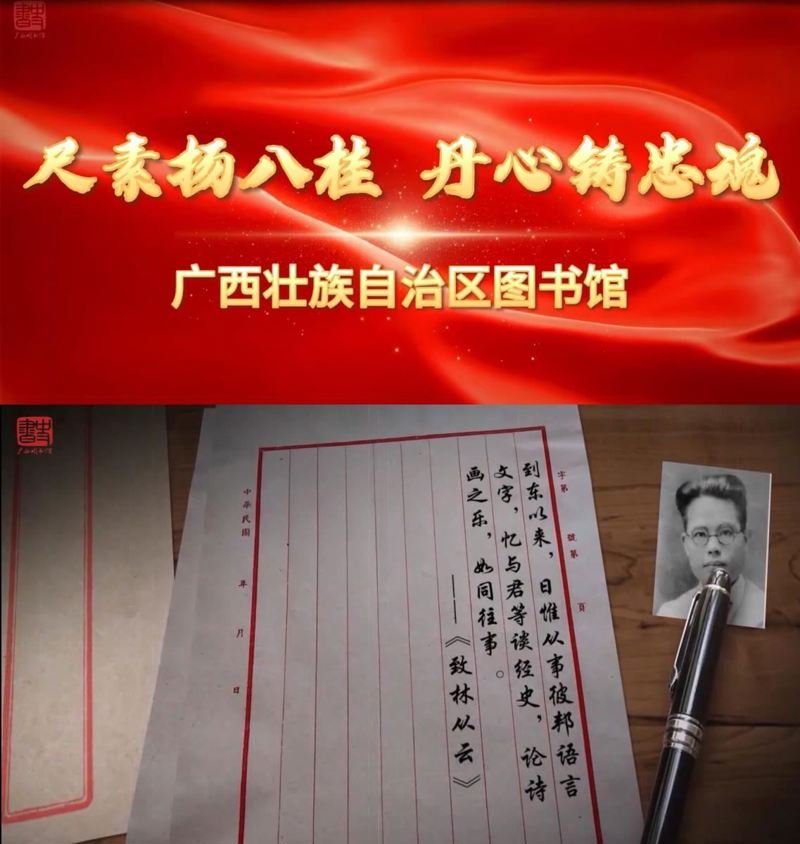 尺素扬八桂 丹心铸忠魂
广西壮族自治区图书馆
字第 號第 頁
到东以来，日惟从事彼邦语言
文字，忆与君等谈经史，论诗
画之乐，如同往事。
——《致林从云》
中华民國 年 月 日